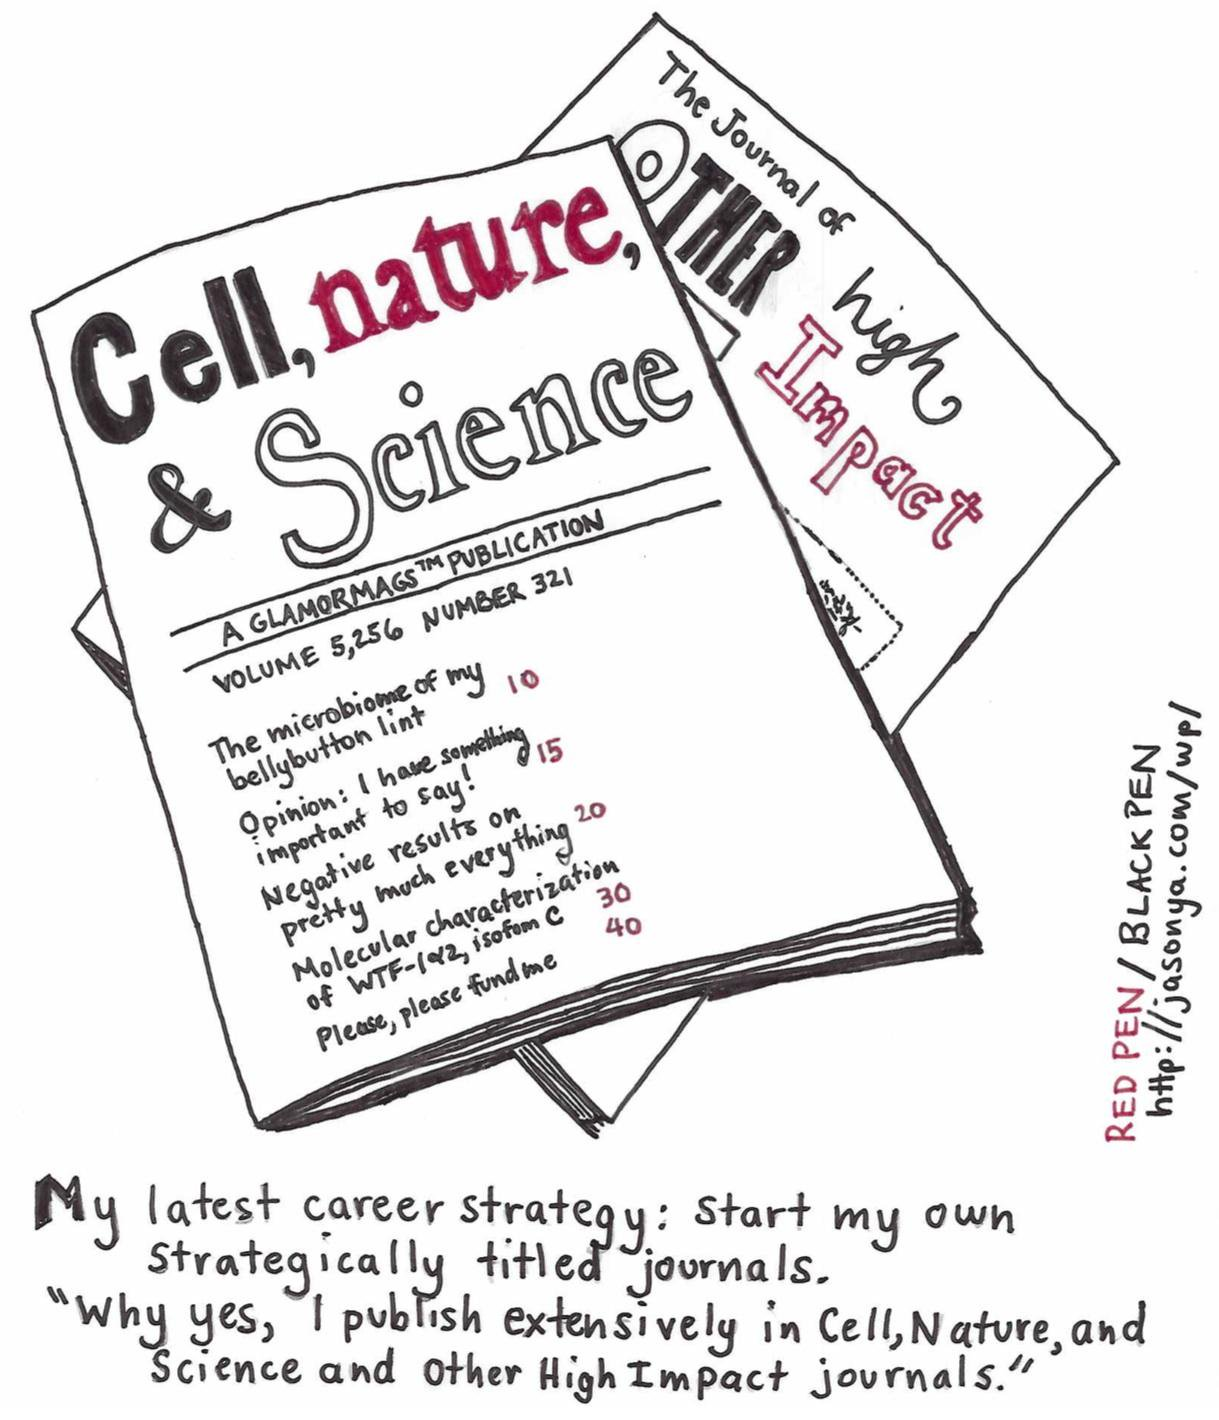 The Journal of
OTHER
high
Impact
Cell, nature,
& Science
A GLAMORMAGS™ PUBLICATION
VOLUME 5,256 NUMBER 321
The microbiome of my 10
bellybutton lint
Opinion: I have something 15
important to say!
Negative results on 20
pretty much everything
Molecular characterization 30
of WTF-1α2, isofom C 40
Please, please fund me
RED PEN / BLACK PEN
http://jasonya.com/wp/
My latest career strategy: Start my own
Strategically titled journals.
"Why yes, I publish extensively in Cell, Nature, and
Science and Other High Impact journals."